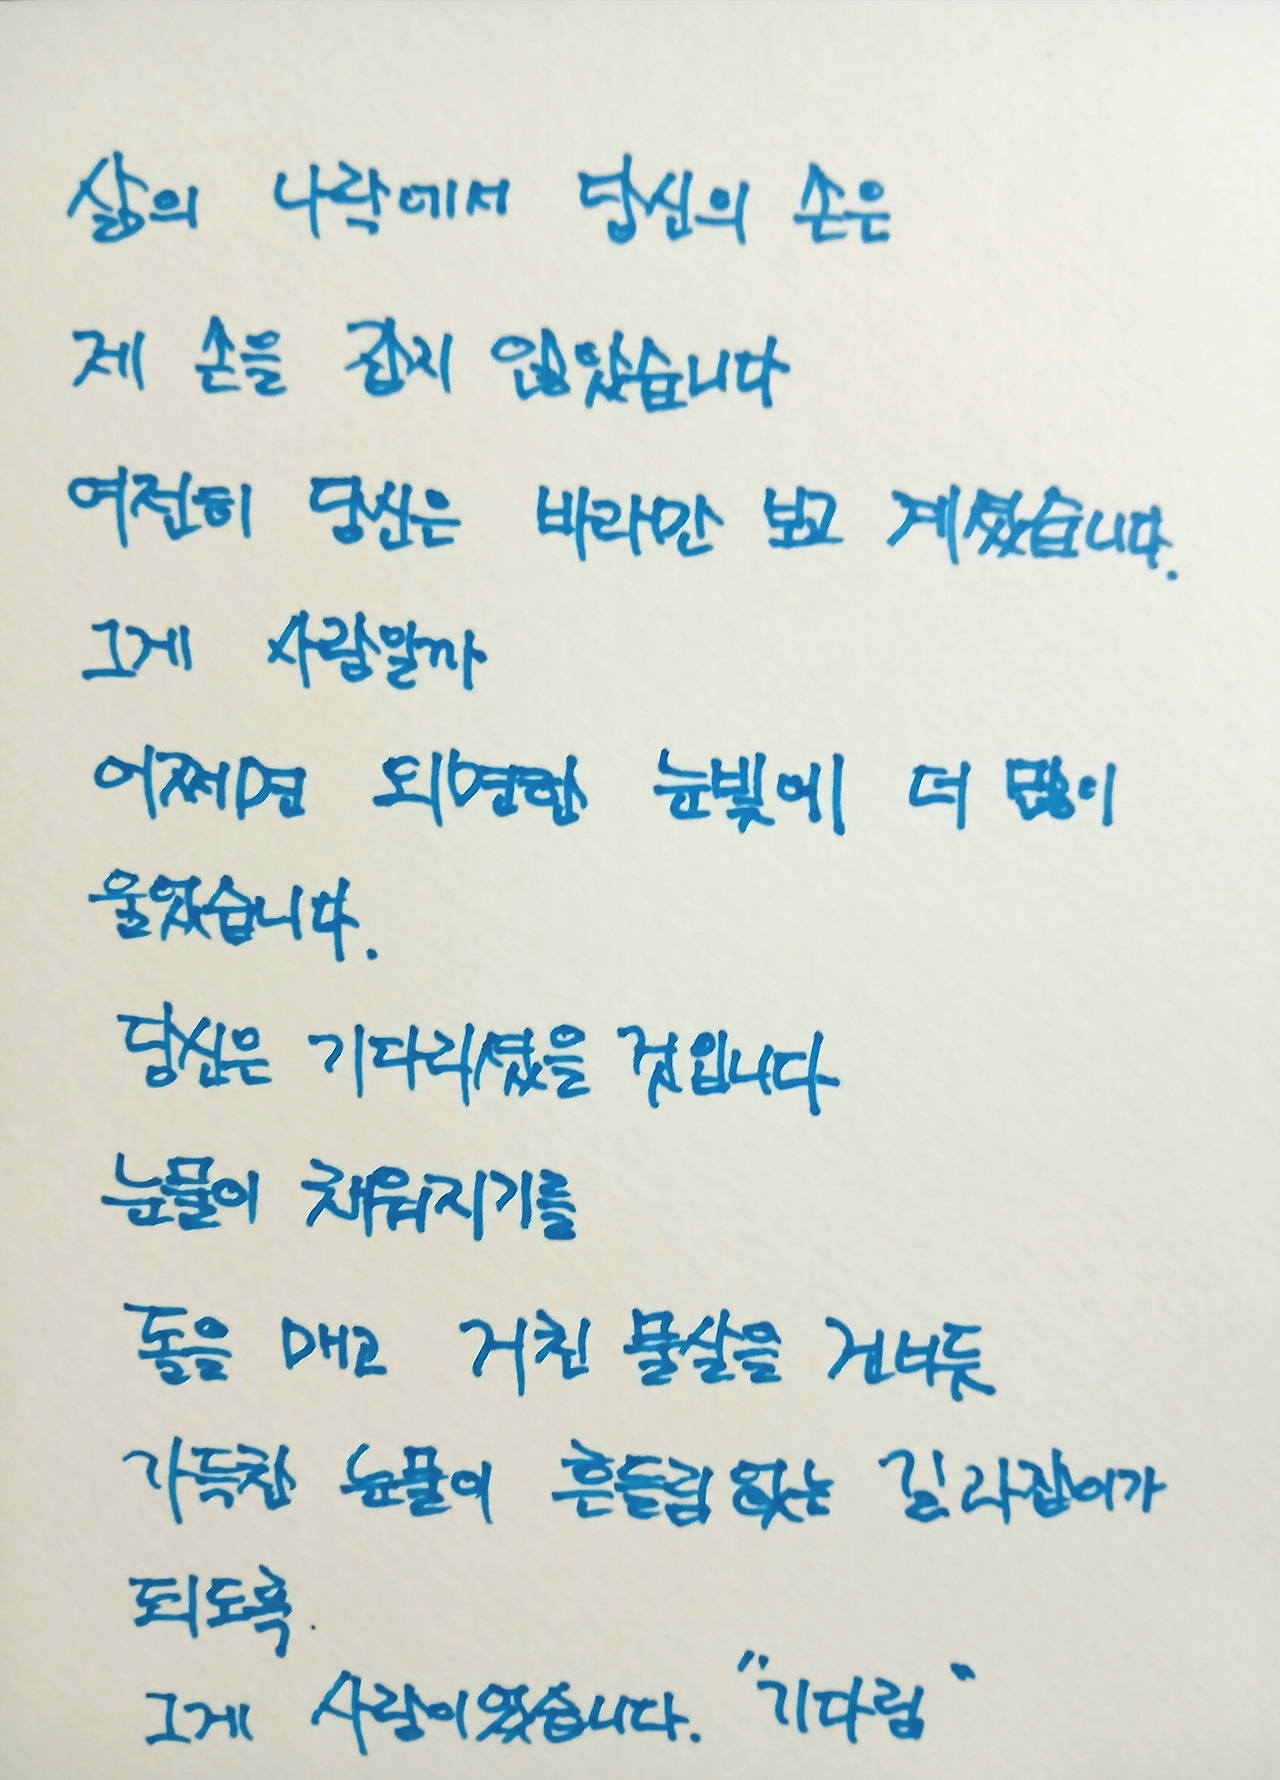 삶의 나락에서 당신의 손은
제 손을 잡지 않았습니다
여전히 당신은 바라만 보고 계셨습니다.
그게 사랑일까
어쩌면 외면한 눈빛에 더 많이
울었습니다.
당신은 기다리셨을 것입니다
눈물이 채워지기를
돌을 매고 거친 물살을 건너듯
가득찬 눈물이 흔들림 없는 길라잡이가
되도록.
그게 사랑이었습니다. "기다림"